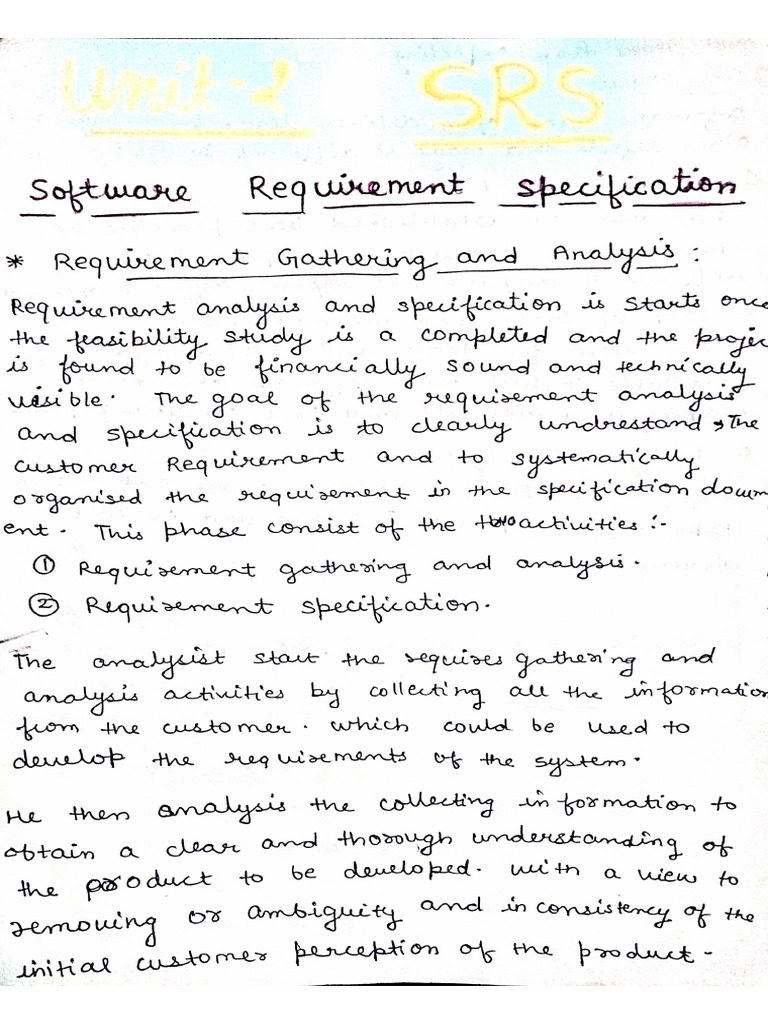 Unit-2 SRS
Software Requirement Specification
* Requirement Gathering and Analysis :
Requirement analysis and specification is starts once
the feasibility study is a completed and the projec
is found to be financially sound and technically
visible. The goal of the requirement analysis
and specification is to clearly undrestand, The
customer Requirement and to systematically
organised the requirement in the specification docum
ent. This phase consist of the two activities :-
① Requirement gathering and analysis.
② Requirement specification.
The analysist start the requires gathering and
analysis activities by collecting all the information
from the customer. which could be used to
develop the requirements of the system.
He then analysis the collecting information to
obtain a clear and thorough understanding of
the product to be developed. with a view to
removing or ambiguity and inconsistency of the
initial customer perception of the product.